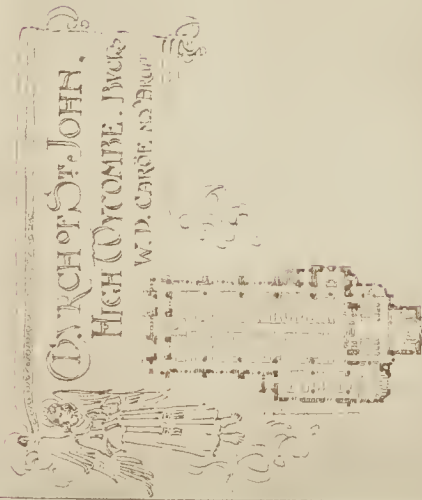 CHVRCH OF ST. JOHN.
HIGH WYCOMBE. BVCKS,
W. D. CARÖE